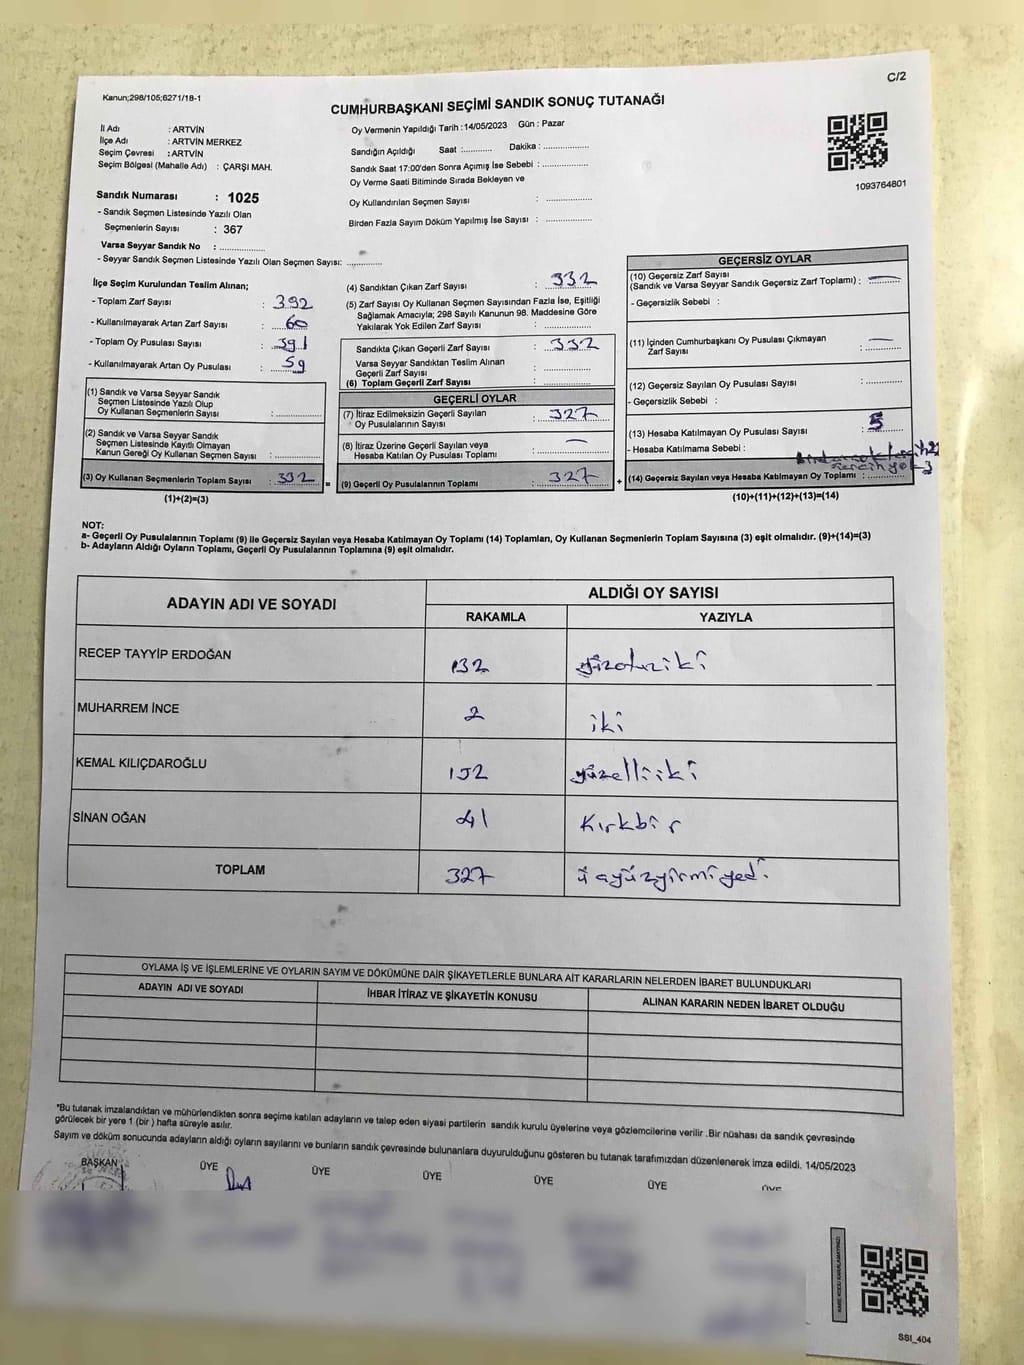 C/2
Kanun;298/105;6271/18-1
CUMHURBAŞKANI SEÇİMİ SANDIK SONUÇ TUTANAĞI
İl Adı : ARTVİN
İlçe Adı : ARTVİN MERKEZ
Seçim Çevresi : ARTVİN
Seçim Bölgesi (Mahalle Adı) : ÇARŞI MAH.
Oy Vermenin Yapıldığı Tarih :14/05/2023 Gün : Pazar
Sandığın Açıldığı Saat :........... Dakika : ................
Sandık Saat 17:00'den Sonra Açımış İse Sebebi : ................
Oy Verme Saati Bitiminde Sırada Bekleyen ve
Oy Kullandırılan Seçmen Sayısı : ................
Birden Fazla Sayım Döküm Yapılmış İse Sayısı : ................
1093764801
Sandık Numarası : 1025
- Sandık Seçmen Listesinde Yazılı Olan
Seçmenlerin Sayısı : 367
Varsa Seyyar Sandık No : ................
- Seyyar Sandık Seçmen Listesinde Yazılı Olan Seçmen Sayısı: ............
İlçe Seçim Kurulundan Teslim Alınan;
- Toplam Zarf Sayısı : 392
- Kullanılmayarak Artan Zarf Sayısı : 60
- Toplam Oy Pusulası Sayısı : 391
- Kullanılmayarak Artan Oy Pusulası : 59
(1) Sandık ve Varsa Seyyar Sandık
Seçmen Listesinde Yazılı Olup
Oy Kullanan Seçmenlerin Sayısı : ................
(2) Sandık ve Varsa Seyyar Sandık
Seçmen Listesinde Kayıtlı Olmayan
Kanun Gereği Oy Kullanan Seçmen Sayısı : ................
(3) Oy Kullanan Seçmenlerin Toplam Sayısı : 332 =
(1)+(2)=(3)
(4) Sandıktan Çıkan Zarf Sayısı : 332
(5) Zarf Sayısı Oy Kullanan Seçmen Sayısından Fazla İse, Eşitliği
Sağlamak Amacıyla; 298 Sayılı Kanunun 98. Maddesine Göre
Yakılarak Yok Edilen Zarf Sayısı : ................
Sandıkta Çıkan Geçerli Zarf Sayısı : 332
Varsa Seyyar Sandıktan Teslim Alınan
Geçerli Zarf Sayısı : ................
(6) Toplam Geçerli Zarf Sayısı : ................
GEÇERLİ OYLAR
(7) İtiraz Edilmeksizin Geçerli Sayılan
Oy Pusulasının Sayısı : 327
(8) İtiraz Üzerine Geçerli Sayılan veya
Hesaba Katılan Oy Pusulası Toplamı : —
(9) Geçerli Oy Pusulalarının Toplamı : 327 +
GEÇERSİZ OYLAR
(10) Geçersiz Zarf Sayısı
(Sandık ve Varsa Seyyar Sandık Geçersiz Zarf Toplamı) : —
- Geçersizlik Sebebi :
(11) İçinden Cumhurbaşkanı Oy Pusulası Çıkmayan
Zarf Sayısı : —
(12) Geçersiz Sayılan Oy Pusulası Sayısı : ............
- Geçersizlik Sebebi :
(13) Hesaba Katılmayan Oy Pusulası Sayısı : 5
- Hesaba Katılmama Sebebi :
(14) Geçersiz Sayılan veya Hesaba Katılmayan Oy Toplamı : ............
(10)+(11)+(12)+(13)=(14)
NOT:
a- Geçerli Oy Pusulalarının Toplamı (9) ile Geçersiz Sayılan veya Hesaba Katılmayan Oy Toplamı (14) Toplamları, Oy Kullanan Seçmenlerin Toplam Sayısına (3) eşit olmalıdır. (9)+(14)=(3)
b- Adayların Aldığı Oyların Toplamı, Geçerli Oy Pusulalarının Toplamına (9) eşit olmalıdır.
ADAYIN ADI VE SOYADI
ALDIĞI OY SAYISI
RAKAMLA YAZIYLA
RECEP TAYYİP ERDOĞAN 132 yüzotuziki
MUHARREM İNCE 2 iki
KEMAL KILIÇDAROĞLU 152 yüzelliiki
SİNAN OĞAN 41 Kırkbir
TOPLAM 327 üçyüzyirmiyedi
OYLAMA İŞ VE İŞLEMLERİNE VE OYLARIN SAYIM VE DÖKÜMÜNE DAİR ŞİKAYETLERLE BUNLARA AİT KARARLARIN NELERDEN İBARET BULUNDUKLARI
ADAYIN ADI VE SOYADI İHBAR İTİRAZ VE ŞİKAYETİN KONUSU ALINAN KARARIN NEDEN İBARET OLDUĞU
*Bu tutanak imzalandıktan ve mühürlendikten sonra seçime katılan adayların ve talep eden siyasi partilerin sandık kurulu üyelerine veya gözlemcilerine verilir .Bir nüshası da sandık çevresinde
görülecek bir yere 1 (bir ) hafta süreyle asılır.
Sayım ve döküm sonucunda adayların aldığı oyların sayılarını ve bunların sandık çevresinde bulunanlara duyurulduğunu gösteren bu tutanak tarafımızdan düzenlenerek imza edildi. 14/05/2023
BAŞKAN ÜYE ÜYE ÜYE ÜYE ÜYE ÜYE
SSI_404